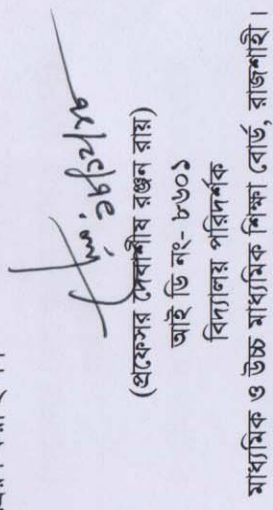 (প্রফেসর দেবাশীষ রঞ্জন রায়)
আই ডি নং- ৮৬০১
বিদ্যালয় পরিদর্শক
মাধ্যমিক ও উচ্চ মাধ্যমিক শিক্ষা বোর্ড, রাজশাহী।